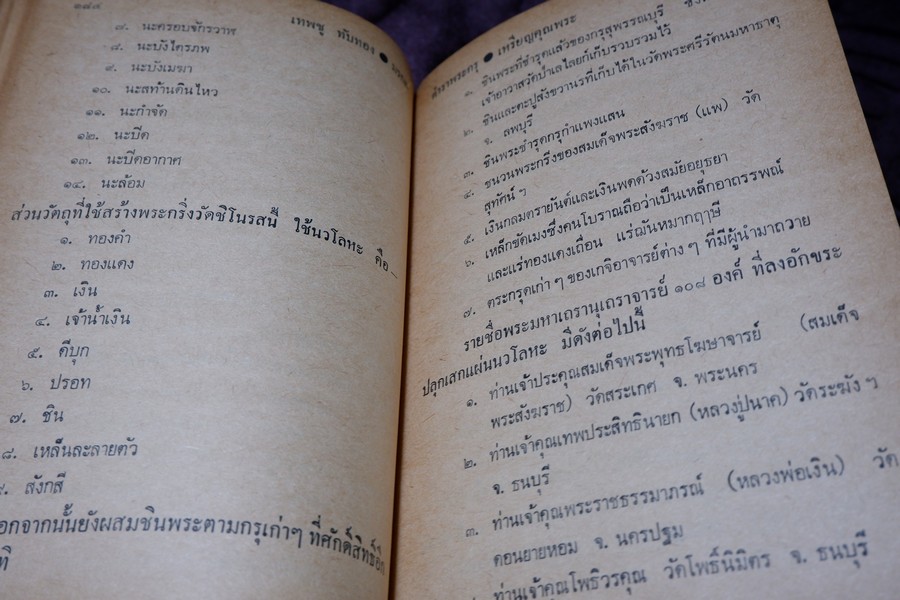 ๒๘๔
เทพชู ทับทอง
๗. นะครอบจักรวาฬ
๘. นะบังไตรภพ
๙. นะบังเมฆา
๑๐. นะสท้านดินไหว
๑๑. นะกำจัด
๑๒. นะปิด
๑๓. นะปิดอากาศ
๑๔. นะล้อม
ส่วนวัตถุที่ใช้สร้างพระกริ่งวัดชิโนรสนี้ ใช้นวโลหะ คือ
๑. ทองคำ
๒. ทองแดง
๓. เงิน
๔. เจ้าน้ำเงิน
๕. ดีบุก
๖. ปรอท
๗. ชิน
๘. เหล็นละลายตัว
๙. สังกสี
อกจากนั้นยังผสมชินพระตามกรุเก่าๆ ที่ศักดิ์สิทธิ์อีก
ทิ
ตำราพระกรุ ● เหรียญคุณพระ
๑. ชินพระที่ชำรุดแล้วของกรุสุพรรณบุรี ซึ่ง
เจ้าอาวาสวัดป่าเลไลยก์เก็บรวบรวมไว้
๒. ชินและตะปูสังขวานรที่เก็บได้ในวัดพระศรีรัตนมหาธาตุ
จ. ลพบุรี
๓. ชินพระชำรุดกรุกำแพงแสน
๔. ชนวนพระกริ่งของสมเด็จพระสังฆราช (แพ) วัด
สุทัศน์ ฯ
๕. เงินกลมตรายันต์และเงินพดด้วงสมัยอยุธยา
๖. เหล็กขัดเมงซึ่งคนโบราณถือว่าเป็นเหล็กอาถรรพณ์
และแร่ทองแดงเถื่อน แร่ฌันหมากฤๅษี
๗. ตระกรุดเก่า ๆ ของเกจิอาจารย์ต่าง ๆ ที่มีผู้นำมาถวาย
รายชื่อพระมหาเถรานุเถราจารย์ ๑๐๘ องค์ ที่ลงอักขระ
ปลุกเสกแผ่นนวโลหะ มีดังต่อไปนี้
๑. ท่านเจ้าประคุณสมเด็จพระพุทธโฆษาจารย์ (สมเด็จ
พระสังฆราช) วัดสระเกศ จ. พระนคร
๒. ท่านเจ้าคุณเทพประสิทธินายก (หลวงปู่นาค) วัดระฆัง ฯ
จ. ธนบุรี
๓. ท่านเจ้าคุณพระราชธรรมาภรณ์ (หลวงพ่อเงิน) วัด
ดอนยายหอม จ. นครปฐม
ท่านเจ้าคุณโพธิวรคุณ วัดโพธิ์นิมิตร จ. ธนบุรี